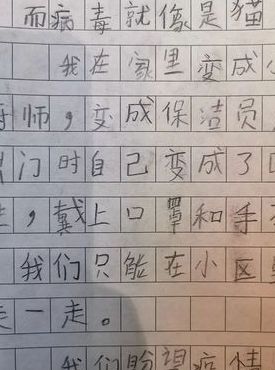 而病毒就像是猫
我在家里变成小
师，变成保洁员
门时自己变成了口
，戴上口罩和手
我们只能在小区里
走一走。
我们盼望疫情